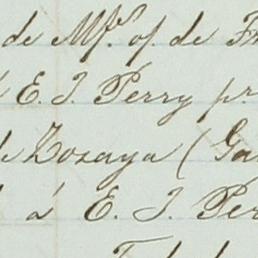 de Mfs. of. de
E. J. Perry pr.
de Zozaya (Ga
á E. J. Per